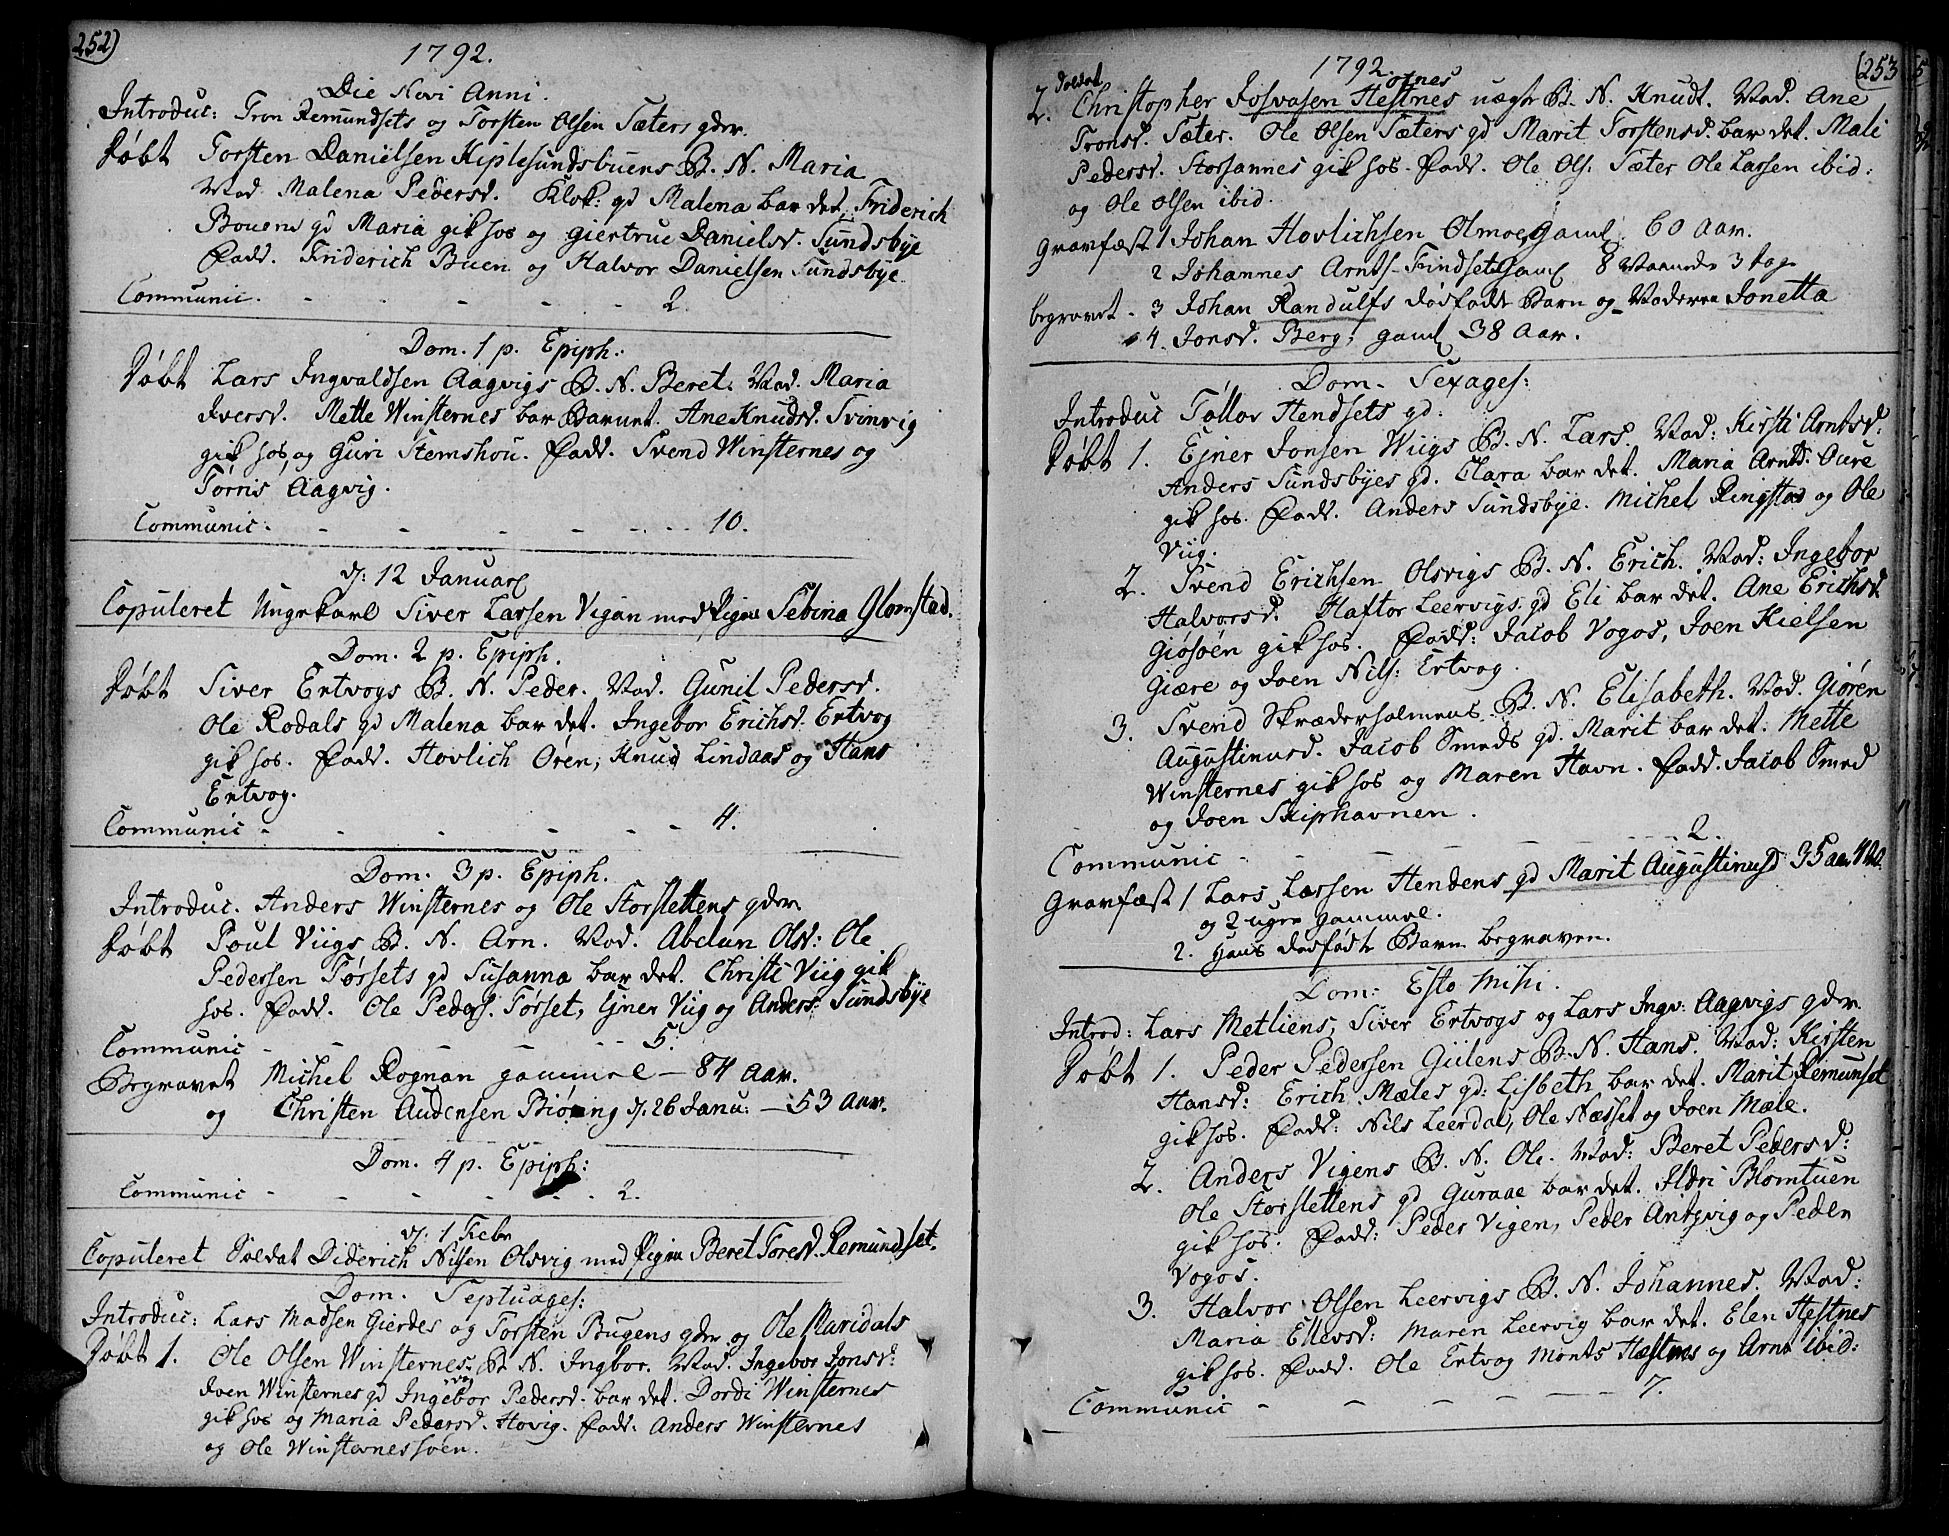 252)
1792.
Die Novi Anni.
Introduc: Tron Remundsets og Torsten Olsen Sæters gdr.
Døbt Torsten Danielsen Kiplesundsbuens B. N. Maria
Mod. Malena Pedersd. Klok: gd Malena bar det. Friderich
Bouens gd Maria gik hos og Giertrue Danielsd. Sundsbye
Fadd. Friderich Buen og Halvor Danielsen Sundsbye.
Communic. - - - - - 2.
Dom. 1 p. Epiph:
Døbt Lars Ingvaldsen Aagvigs B. N. Beret. Mod. Maria
Iversd. Mette Winsternes bar Barnet. Ane Knudsd. Svinvig
gik hos, og Guri Stemshou. Fadd. Svend Winsternes og
Tørris Aagvig.
Communic. - - - - - 10.
d: 12 Januarj
Copuleret Ungekarl Siver Larsen Vigan med Pigen Sebina Glomstad.
Dom. 2 p. Epiph.
Døbt Siver Ertvogs B. N. Peder. Mod. Gunil Pedersd.
Ole Rodals gd Malena bar det. Ingebor Erichsd. Ertvog
gik hos. Fadd. Hovlich Ören, Knud Lindaas og Hans
Ertvog.
Communic - - - - - 4.
Dom. 3 p. Epiph.
Introduc. Anders Winsternes og Ole Storslettens gdr.
Døbt Poul Viigs B. N. Arn. Mod. Abelun Olsd: Ole
Pedersen Tørsets gd Susanna bar det. Christi Viig gik
hos. Fadd. Ole Peders. Tørset, Ejner Viig og Anders: Sundsbye
Communic - - - - - 5.
Begravet Michel Rognan gammel - 84 Aar.
og Christen Audensen Biøring d. 26 Janu: - 53 Aar.
Dom. 4 p. Epiph:
Communic - - - - - 2.
d: 1 Febr
Copuleret Soldat Diderich Nilsen Olsvig med Pigen Beret Toresd. Remundset.
Dom. Septuages:
Introduc: Lars Madsen Gierdes og Torsten Bugens gdr og Ole Maridals
Døbt 1. Ole Olsen Winsternes B. N. Ingbor. Mod. Ingebor Jonsd:
Joen Winsternes gd Ingebor Pedersd. bar det. Dordi Winsternes
gik hos og Maria Pedersd. Hovig. Fadd: Anders Winsternes
og Ole Winsternessøen.
(253
1792.
Soldat Otnes
2. Christopher Josvasen Hestnes uægte B. N. Knudt. Mod. Ane
Tronsd. Sæter. Ole Olsen Sæters gd Marit Torstensd. bar det. Mali
Pedersd. Storsannes gik hos. Fadd. Ole Ols. Sæter Ole Larsen ibid:
og Ole Olsen ibid.
Gravfæst 1 Johan Hovlichsen Olmoe, gaml. 60 Aar.
2 Johannes Arnts. Findset gaml 8 Maaneder 3 dage
begravet - 3 Johan Randulfs dødfødt Barn og Moderen Jonetta
4. Jonsd. Berg, gaml 38 Aar.
Dom. Sexages:
Introduc Tøllov Hendsets gd:
Døbt 1. Ejner Jonsen Wiigs B. N. Lars. Mod: Kirsti Arntsd:
Anders Sundsbyes gd. Clara bar det. Maria Arntsd. Oure
gik hos. Fadd. Anders Sundsbye. Michel Ringstad og Ole
Viig.
2. Svend Erichsen Olsvigs B. N. Erich. Mod: Ingebor
Halvorsd. Haftor Leervigs gd Eli bar det. Ane Erichsd
Giøsøen gik hos. Fadd: Jacob Vogos, Joen Kielsen
Giære og Joen Nils: Ertvog.
3. Svend Skræderholmens B. N. Elisabeth. Mod. Giøren
Augustinusd. Jacob Smeds gd. Marit bar det. Mette
Winsternes gik hos og Maren Havn. Fadd. Jacob Smed
og Joen Skiphavnen.
Communic - - - - - 2.
Gravfæst 1 Lars Larsen Hendens gd Marit Augustinusd 35 aar
og 2 uger gammel.
2. Hans dødfødte Barn begraven.
Dom: Esto Mihi.
Introd: Lars Metliens, Siver Ertvogs og Lars Ingv: Aagvigs gdr.
Døbt 1. Peder Pedersen Giilens B. N. Hans. Mod: Kirsten
Hansd: Erich Mæles gd: Lisbeth bar det. Marit Remunset
gik hos. Fadd: Nils Leerdal, Ole Næsset og Joen Mæle.
2. Anders Vigens B. N. Ole. Mod: Beret Pedersd:
Ole Storslettens gd Guraae bar det. Ildri Blomtuen
gik hos. Fadd: Peder Vigen, Peder Antzvig og Peder
Vogos.
3. Halvor Olsen Leervigs B. N. Johannes. Mod:
Maria Ellevsd: Maren Leervig bar det. Elen Hestnes
gik hos. Fadd. Ole Ertvog Monts Hæstnes og Arnt ibid:
Communic - - - - - 7.